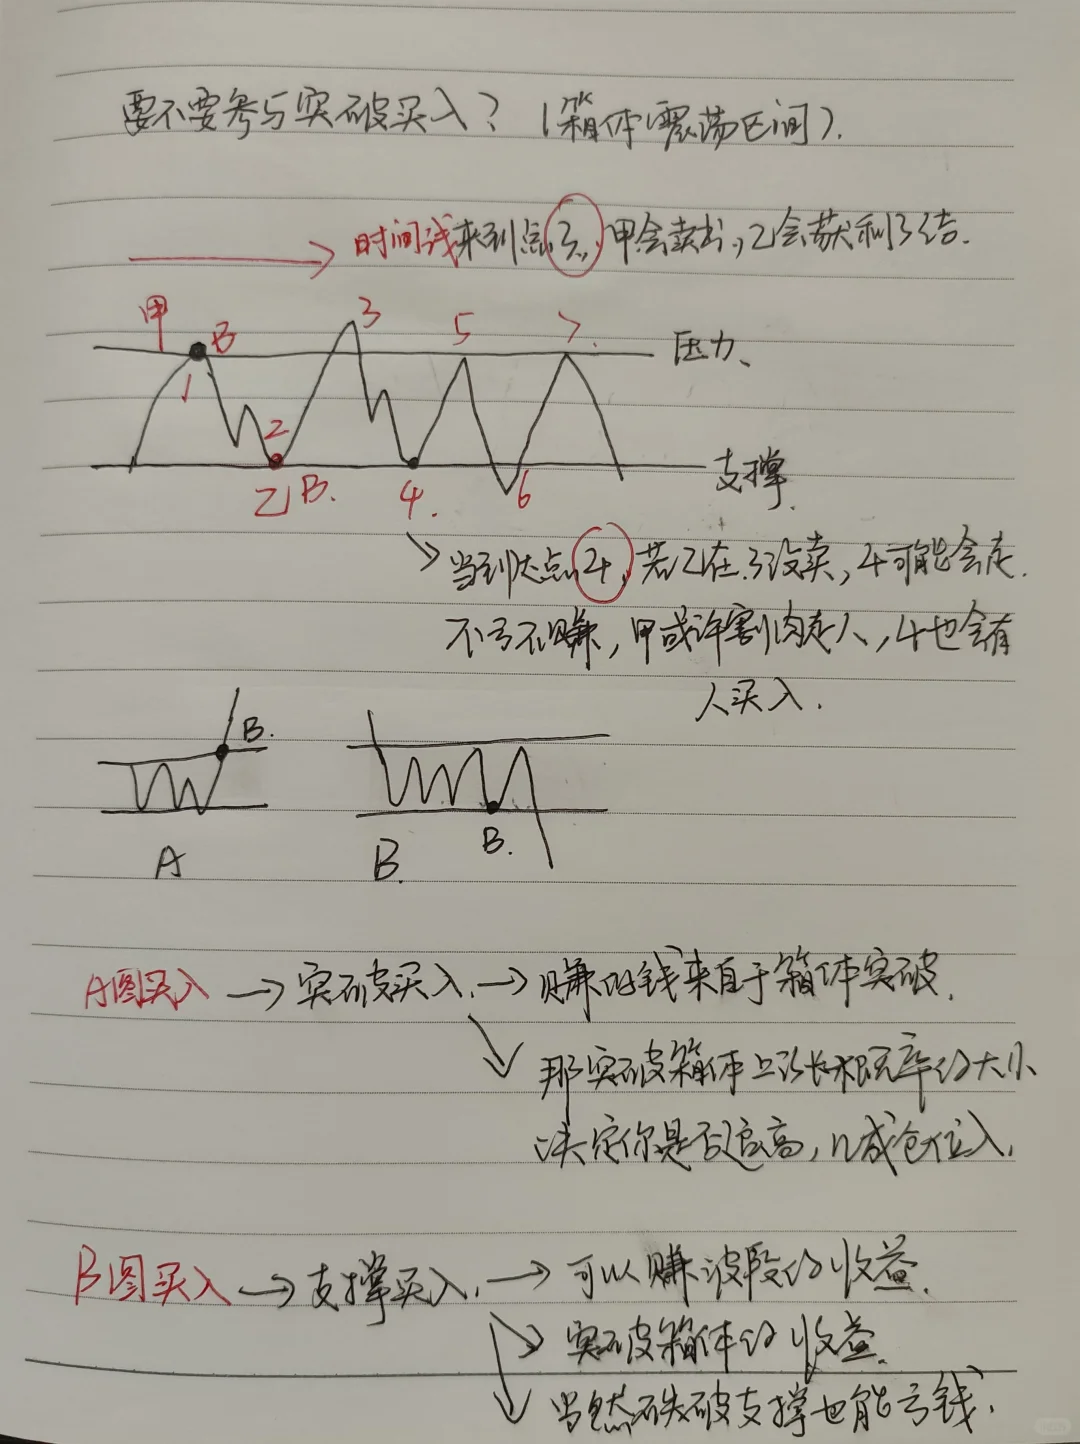 要不要参与突破买入？（箱体震荡区间）.
时间线来到点3，甲会卖出，乙会获利了结.
甲 B 3 5 7.
压力、
1
2
支撑.
乙 B. 4. 6
当到达点4，若乙在3没卖，4可能会走.
不亏不赚，甲或许割肉走人，4也会有
人买入.
B.
B.
A B.
A图买入 → 突破买入. → 赚的钱来自于箱体突破.
那突破箱体上涨概率的大小
决定你是否追高，减仓位入.
B图买入 → 支撑买入. → 可以赚波段的收益.
突破箱体的收益.
当然跌破支撑也能亏钱.